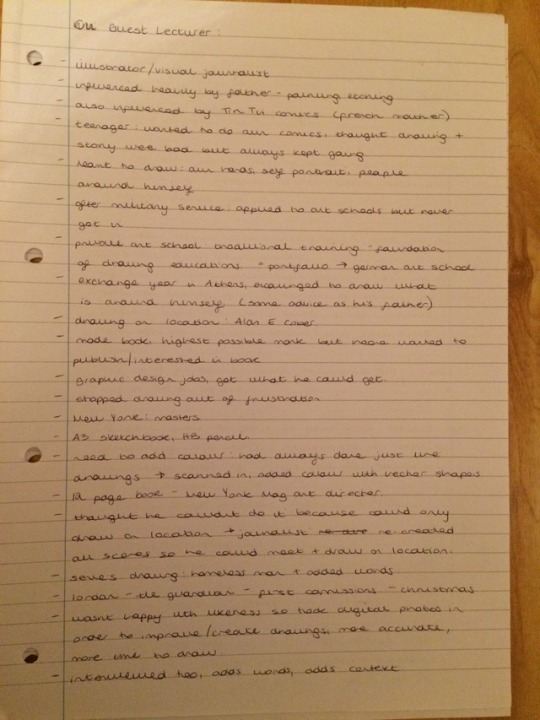 Guest Lecturer :
- illustrator/visual journalist
- influenced heavily by father - painting etching
- also influenced by Tin Tin comics (french mother)
- teenager: wanted to do own comics, thought drawing +
story were bad but always kept going
- learnt to draw: own hands, self portrait, people
around himself
- after military service: applied to art schools but never
got in
- private art school traditional training - foundation
of drawing educations - portfolio → german art school
- exchange year in Athens, encouraged to draw what
is around himself (same advice as his father)
- drawing on location: Alan E Cober
- made book, highest possible mark but noone wanted to
publish/interested in book
- graphic design jobs, got what he could get.
- stopped drawing out of frustration
- New York: masters
- A3 sketchbook, HB pencil
- need to add colour: had always done just line
drawings → scanned in, added colour with vector shapes
- page book - New York Mag art director.
- thought he couldn't do it because could only
draw on location → journalist re-created
all scenes so he could meet + draw on location.
- series drawing: homeless man + added words
- london - the guardian - first comissions - christmas
- wasnt happy with likeness so took digital photos in
order to improve/create drawings, more accurate,
more time to draw.
- interviewed too, adds words, adds context